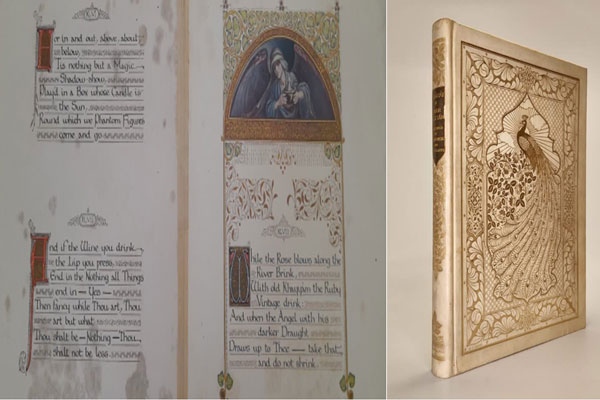 For in and out, above, about,
below,
'Tis nothing but a Magic
Shadow-show,
Play'd in a Box whose Candle is
the Sun,
Round which we Phantom Figures
come and go.
And if the Wine you drink,
the Lip you press,
End in the Nothing all Things
end in — Yes —
Then fancy while Thou art, Thou
art but what
Thou shalt be — Nothing — Thou
shalt not be less.
While the Rose blows along the
River Brink,
With old Khayyam the Ruby
Vintage drink:
And when the Angel with his
darker Draught
Draws up to Thee — take that,
and do not shrink.